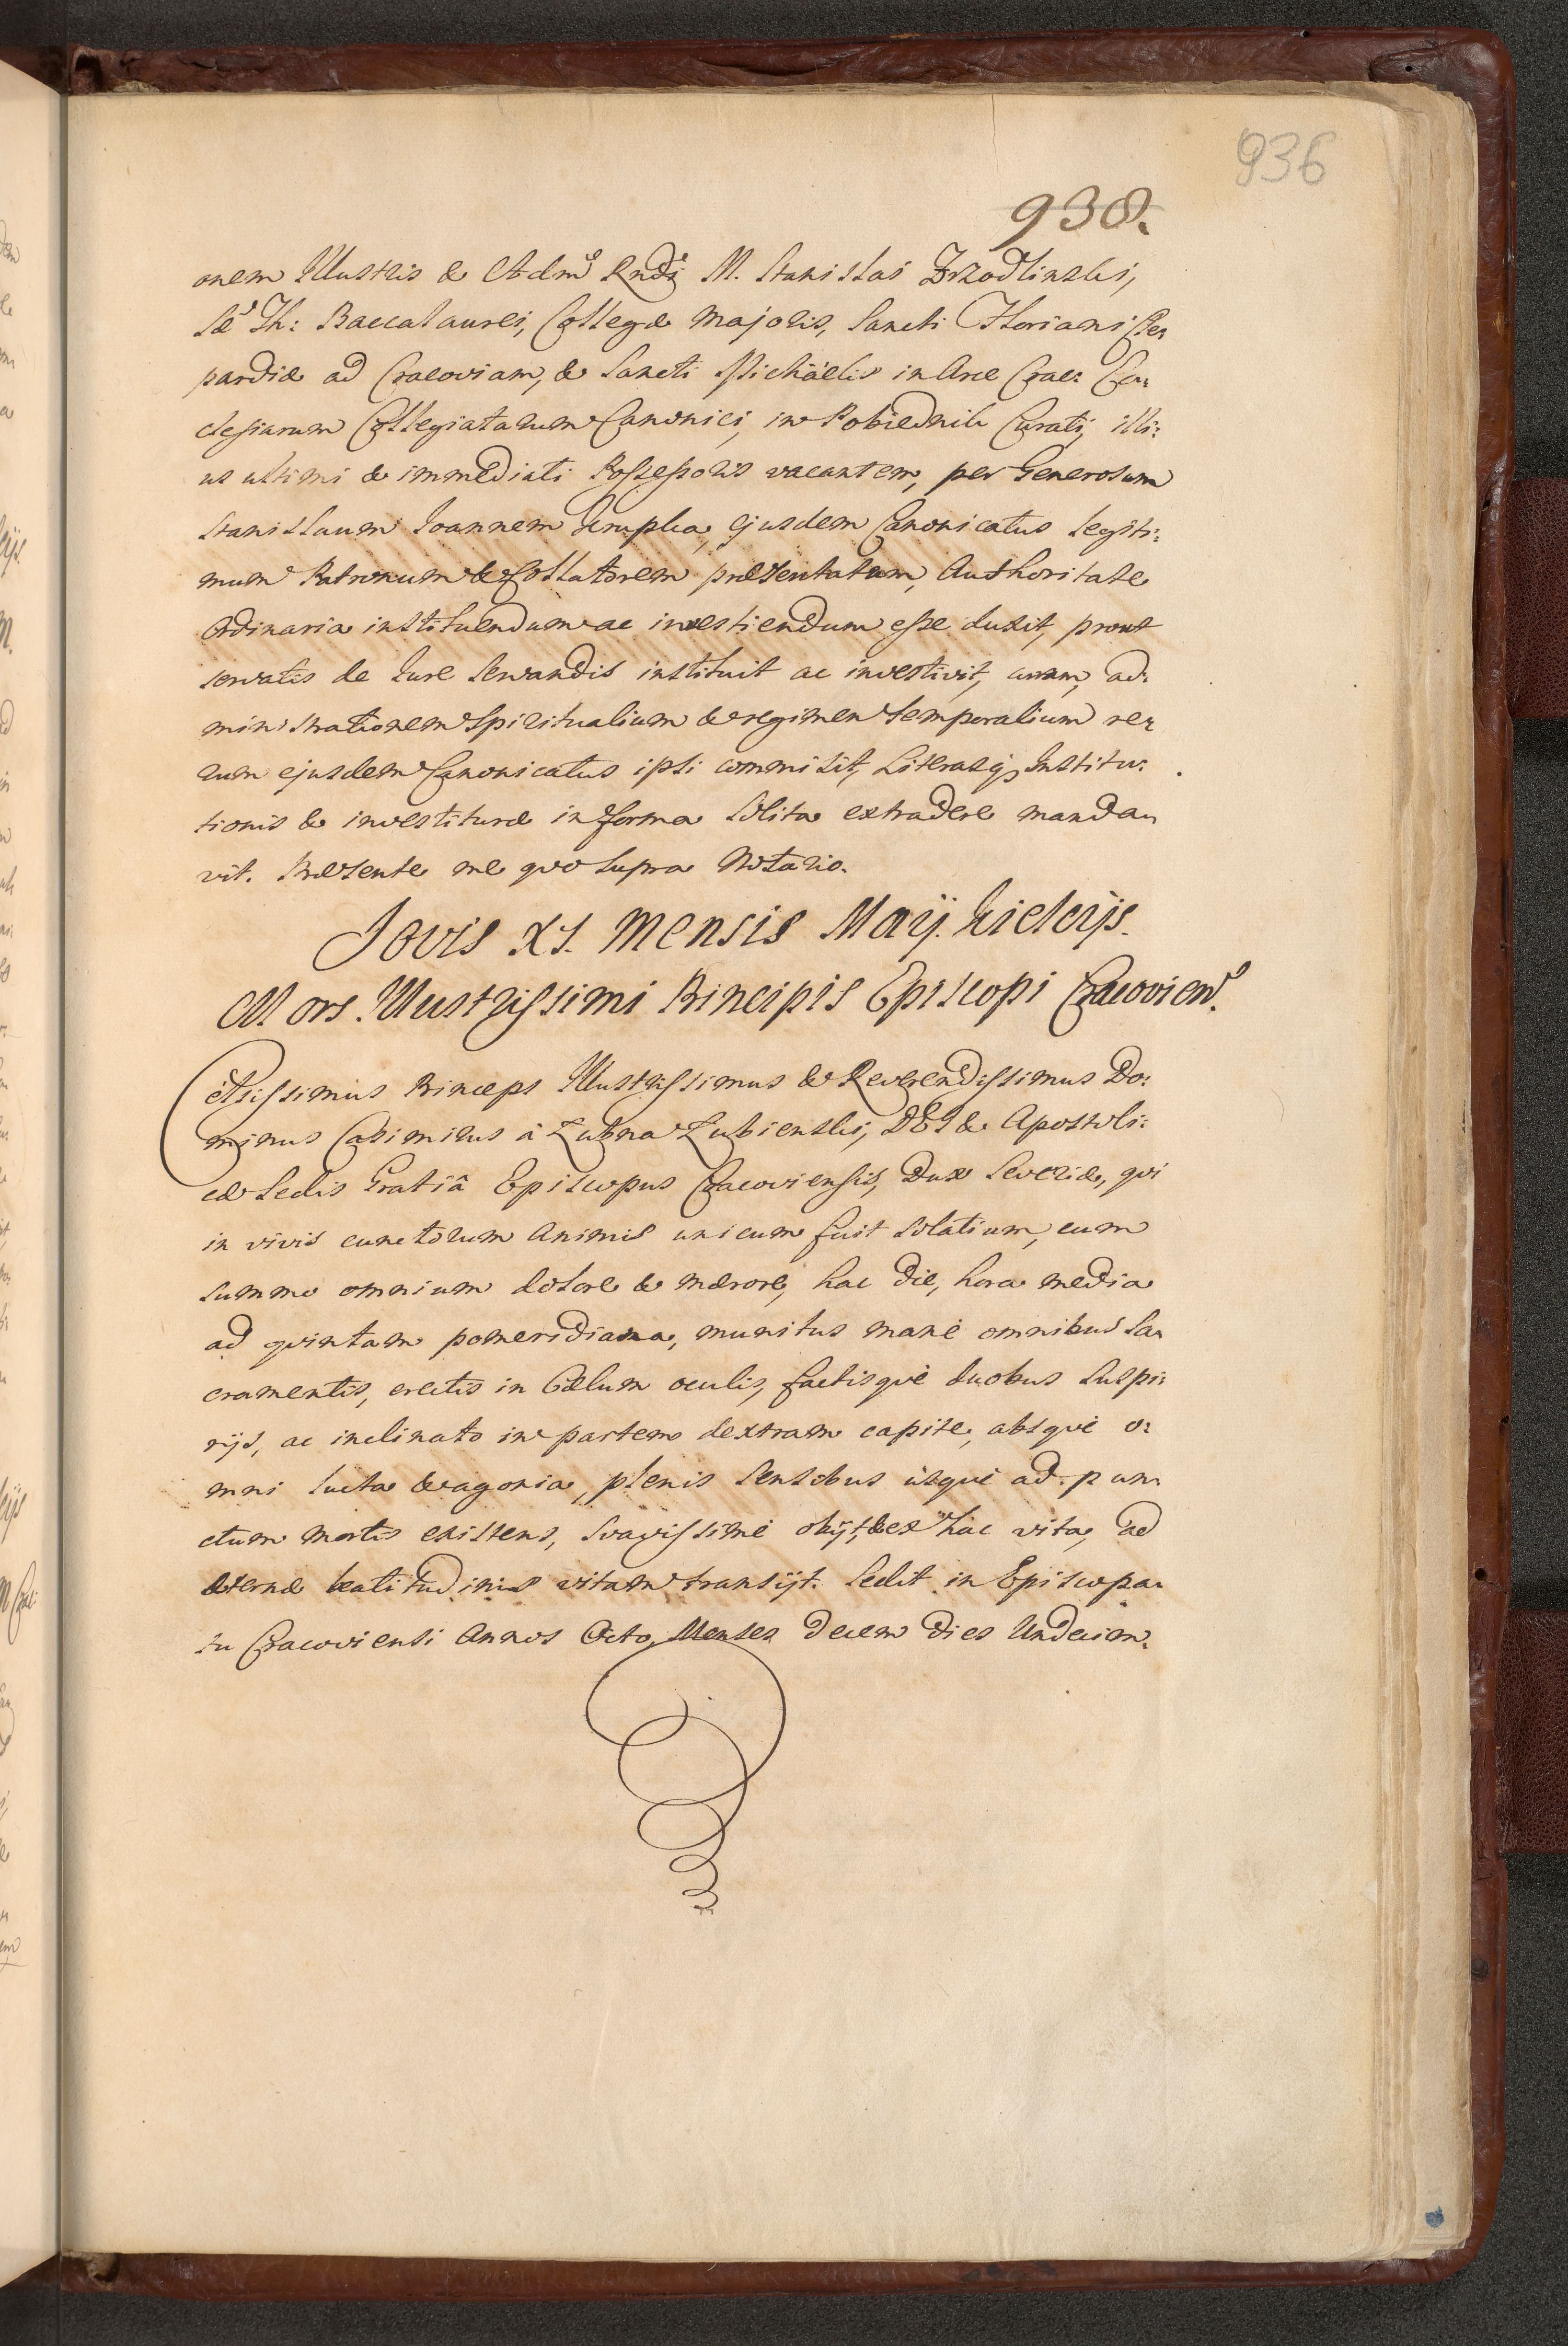 936
938.
onem Illustris & Adm. Rndi M. Stanislai Zrzodlinski,
Sæ Th: Baccalaurei, Collegæ Majoris, Sancti Floriani Cle-
pardiæ ad Cracoviam, & Sancti Michäelis in Arce Crac: Ec-
clesiarum Collegiatarum Canonici, in Pobiednik Curati, illi-
us ultimi & immediati Possessoris vacantem, per Generosum
Stanislaum Joannem ejusdem Canonicatus legiti-
mum Patronum & Collatorem præsentatum, Authoritate
Ordinaria instituendum ac investiendum esse duxit, prout
servatis de Jure servandis instituit ac investivit, curam, ad-
ministrationem Spiritualium & regimen temporalium re-
rum ejusdem Canonicatus ipsi commisit, Literasq; Institu-
tionis & investituræ in forma solita extradere manda-
vit. Præsente me quo supra Notario.
Jovis XI. Mensis Maij. Kielcijs.
Mors Illustrissimi Principis Episcopi Cracovien.
Celsissimus Princeps Illustrissimus & Reverendissimus Do-
minus Casimirus à Łubna Łubienski, DEI & Apostoli-
cæ Sedis Gratiâ Episcopus Cracoviensis, Dux Severiæ, qui
in vivis cunctorum animis unicum fuit solatium, cum
summo omnium dolore & mærore, hac die, hora media
ad quintam pomeridiana, munitus manè omnibus Sa-
cramentis, erectis in Cælum oculis, factisquè duobus suspi-
rijs, ac inclinato in partem dextram capite, absquè o-
mni lucta & agonia, plenis sensibus ùsquè ad pun-
ctum mortis existens, suavissimè obijt, & ex hac vita, ad
æternæ beatitudinis vitam transijt. Sedit in Episcopa-
tu Cracoviensi Annos Octo Menses Decem Dies Undecim.